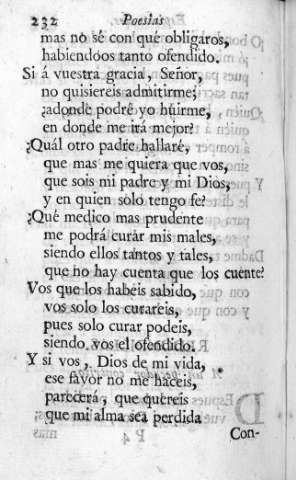 232 Poesias
mas no sé con qué obligaros,
habiendoos tanto ofendido.
Si á vuestra gracia, Señor,
no quisiereis admitirme;
¿adonde podré yo huirme,
en donde me irá mejor?
¿Quál otro padre hallaré,
que mas me quiera que vos,
que sois mi padre y mi Dios,
y en quien solo tengo fe?
¿Qué medico mas prudente
me podrá curar mis males,
siendo ellos tantos y tales,
que no hay cuenta que los cuente?
Vos que los habeis sabido,
vos solo los curareis,
pues solo curar podeis,
siendo vos el ofendido.
Y si vos, Dios de mi vida,
ese favor no me haceis,
parecerá, que quereis
que mi alma sea perdida
Con-